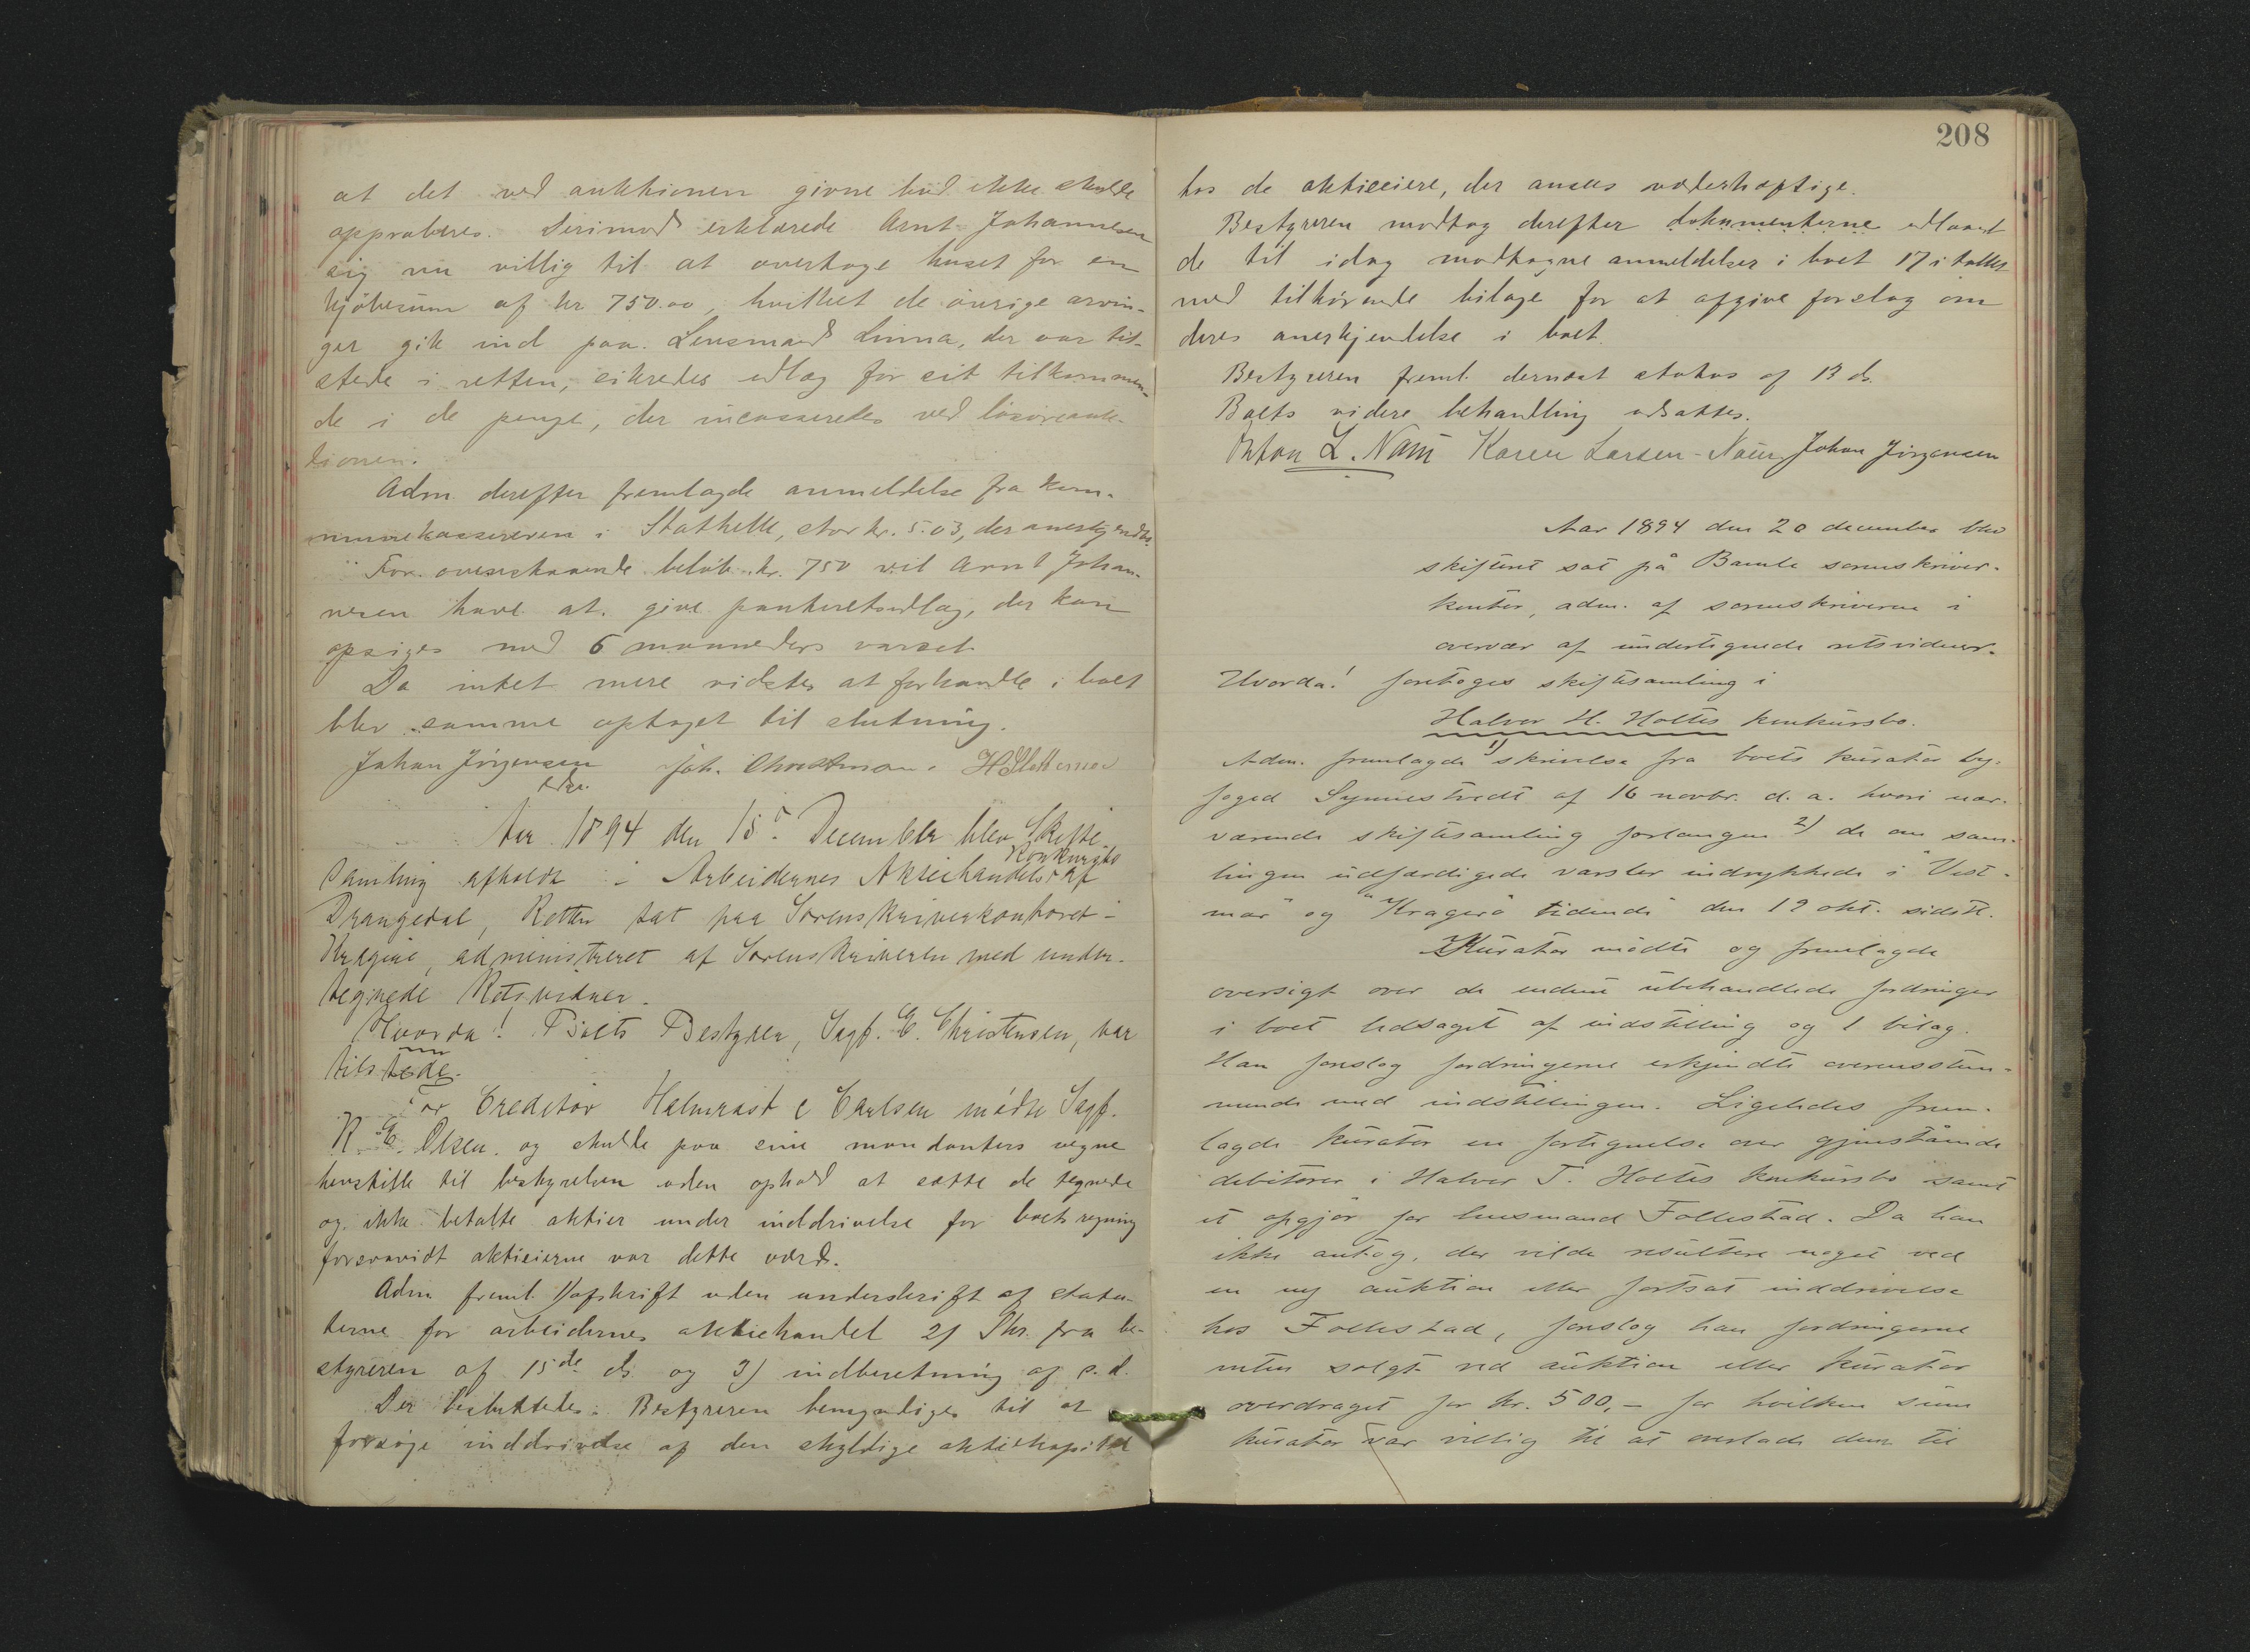 at det ved auktionen givne bud ikke skulde
approberes. Derimod erklærede Arnt Johannesen
sig nu villig til at overtage huset for en
kjöbesum af kr 750.00, hvilket de övrige arvin-
ger gik ind paa. Lensmand Linna, der var til-
stede i retten, sikredes udlæg for sit tilkommen-
de i de penge, der incasseredes ved lösöreauk-
tionen.
Adm derefter fremlagde anmeldelse fra kom-
munekassereren i Stathelle, stor kr. 5.03, der anerkjendtes.
For ovenstaaende belöb kr. 750 vil Arnt Johan-
nesen have at give panteretsudlæg, der kan
opsiges med 6 maaneders varsel.
Da intet mere vidstes at forhandle i boet
blev samme optaget til slutning.
Johan Jörgensen Joh. Christman.
Aar 1894 den 15. December blev Skifte-
Konkursbo
samling afholdt i Arbeidernes Aktiehandels af
Drangedal, Retten sat paa Sorenskriverkontoret i
Kragerø, administreret af Sorenskriveren med under-
tegnede Retsvidner.
Hvorda! Boets Bestyrer, Sagf. C. Christensen, var
tilstede.
For Creditor Halmrast & Carlsen mødte Sagf.
R. C. Olsen og skulde paa sine mandanters vegne
henstille til bestyrelsen uden ophold at sætte de tegnede
og ikke betalte aktier under inddrivelse for boets regning
forsaavidt aktieierne var dette værd.
Adm freml. 1) afskrift uden underskrift af statu-
terne for arbeidernes aktiehandel 2) Skr. fra be-
styreren af 15de ds. og 3) indberetning af s. d.
Der besluttedes: Bestyreren bemyndiges til at
forsøge inddrivelse af den skyldige aktiekapital
208
hos de aktieeiere, der ansees vederhæftige.
Bestyreren modtog derefter dokumenterne udlaant
de til idag modtagne anmeldelser i boet 17 i tallet
med tilhörende bilage for at afgive forslag om
deres anerkjendelse i boet.
Bestyreren freml. dernæst status af 13 ds.
Boets videre behandling udsattes.
Anton L. Næm Karen Larsen-Næm Johan Jörgensen
Aar 1894 den 20 december blev
skifteret sat på Bamle sorenskriver-
kontor, adm. af sorenskriveren i
overvær af undertegnede retsvidner.
Hvorda! foretoges skiftesamling i
Halvor H. Holtes konkursbo.
Adm. fremlagde 1) skrivelse fra boets kurator by-
foged Synnestvedt af 16 novbr. d. a. hvori nær-
værende skiftesamling forlanges 2) de om sam-
lingen udfærdigede varsler indrykkede i "Vest-
mar" og "Kragerö tidende" den 19 okt. sidstl.
Kurator mödte og fremlagde
oversigt over de endnu ubehandlede fordringer
i boet ledsaget af indstilling og 1 bilag.
Han foreslog fordringerne erkjendte overensstem-
mende med indstillingen. Ligeledes frem-
lagde kurator en fortegnelse over gjenstående
debitorer i Halvor T. Holtes konkursbo samt
et opgjör for lensmand Follestad. Da han
ikke antog, der vilde resultere noget ved
en ny auktion eller fortsat inddrivelse
hos Follestad, foreslog han fordringerne
enten solgt ved auktion eller kurator
overdraget for kr. 500,- for hvilken sum
kurator var villig til at overlade dem til